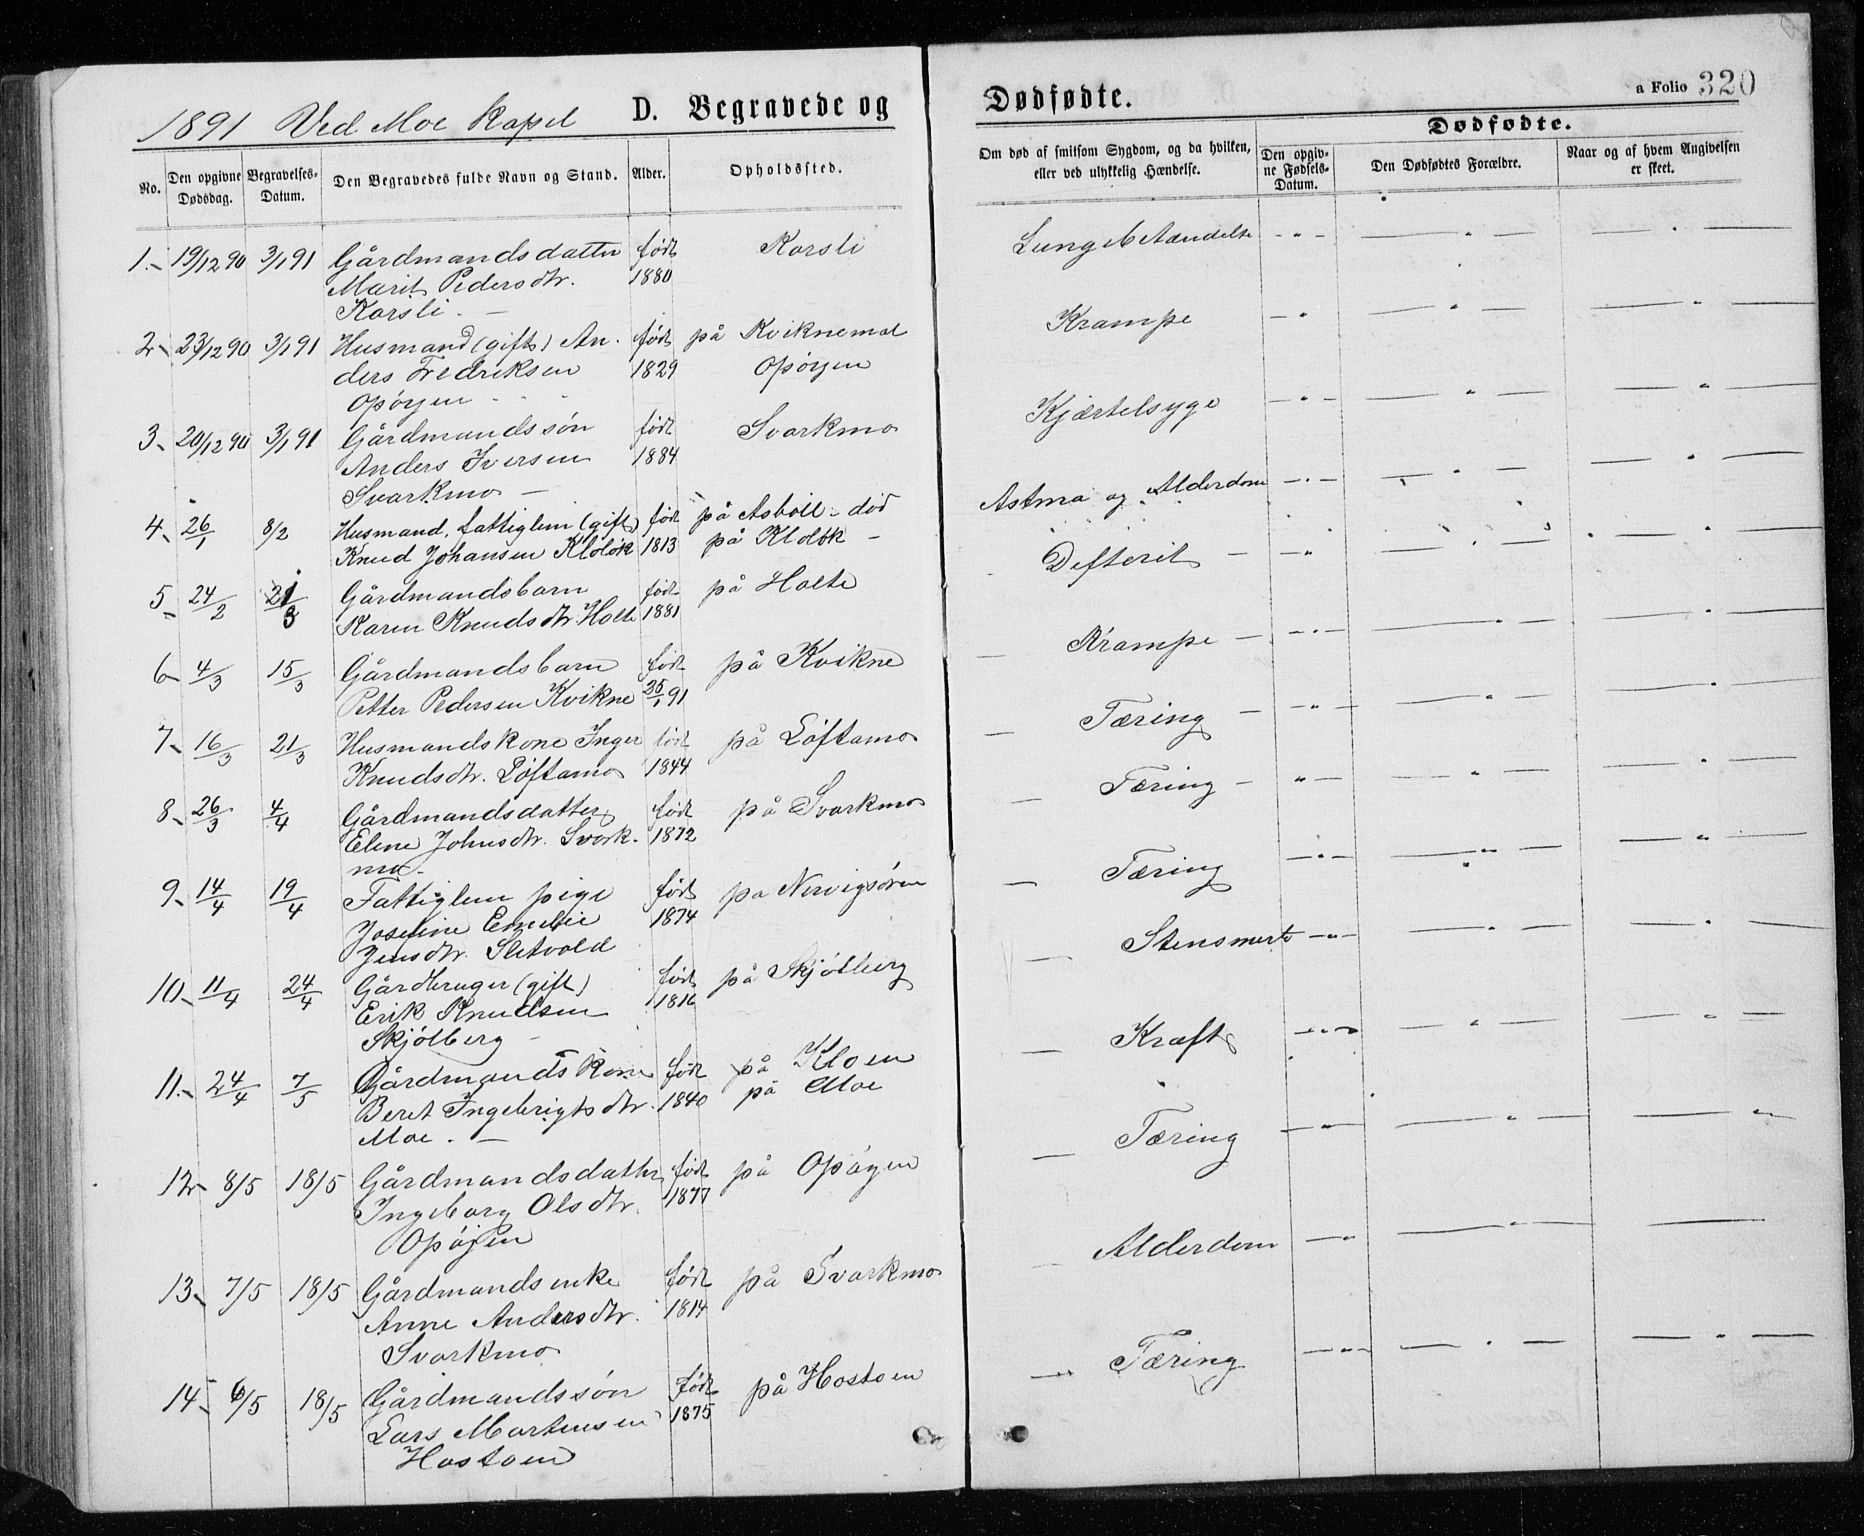 1891 Ved Moe Kapel D. Begravede og Dødfødte. a Folio 320
No. Den opgivne Dødsdag. Begravelses-Datum. Den Begravedes fulde Navn og Stand. Alder. Opholdssted.
Om død af smitsom Sygdom, og da hvilken, eller ved ulykkelig Hændelse.
Dødfødte.
Den opgivne Fødsels-Datum. Den Dødfødtes Forældre. Naar og af hvem Angivelsen er skeet.
1. 19/12 90 3/1 91 Gårdmandsdatter født Korsli Lungebetændelse
Marit Pedersdtr. 1880
Korsli
2 23/12 90 3/1 91 Husmand (gift) An- født på Kviknemal Krampe
ders Fredriksen 1829 Opøyen
Opøyen
3 20/12 90 3/1 91 Gårdmandssøn født Svorkmo Kjærtelsyge
Anders Iversen 1884
Svorkmo
4 26/1 8/2 Husmand, fattiglem (gift) født på Asbøll død Astma og Alderdom
Knud Johansen Kløløk 1813 på Kløløk
5 24/2 21/3 Gårdmandsbarn født på Holte Defterit
Karen Knudsdtr. Holte 1881
6 4/3 15/3 Gårdmandsbarn født på Kvikne Krampe
Petter Pedersen Kvikne 25/1 91
7 16/3 21/3 Husmandskone Inger født på Løftamo Tæring
Knudsdtr. Løftamo 1844
8 26/3 4/4 Gårdmandsdatter født på Svorkmo Tæring
Elene Johnsdtr. Svork- 1872
mo.
9 14/4 19/4 Fattiglem pige født på Nervigsøren Tæring
Josefine Emelie 1874
Jensdtr. Sletvold
10 11/4 24/4 Gårdbruger (gift) født på Skjølberg Stensmerte
Erik Knudsen 1816
Skjølberg
11. 24/4 7/5 Gårdmands kone født på Kloen Kræft
Beret Ingebrigtsdtr. 1840 på Moe
Moe.
12 8/5 18/5 Gårdmandsdatter født på Opøyen Tæring
Ingeborg Olsdtr. 1877
Opøyen
13 7/5 18/5 Gårdmandsenke født på Svorkmo Alderdom
Anne Andersdtr. 1814
Svorkmo
14 6/5 18/5 Gårdmandssøn født på Hostoen Tæring
Lars Mortensen 1875
Hostoen